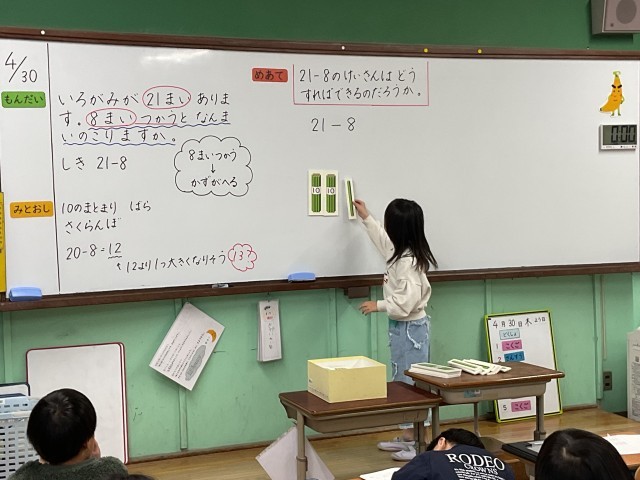 4/30
もんだい
いろがみが 21まい ありま
す。8まい つかうと なんま
いのこりますか。
しき 21-8
8まいつかう
↓
かずがへる
みとおし
10のまとまり ばら
さくらんぼ
20-8=12
↑12より1つ大きくなりそう
13?
めあて
21-8のけいさんは どう
すればできるのだろうか。
21-8
10 10
4月30日 木
1 こくご
2 さんすう
5 こくご
RODEO
CROWNS